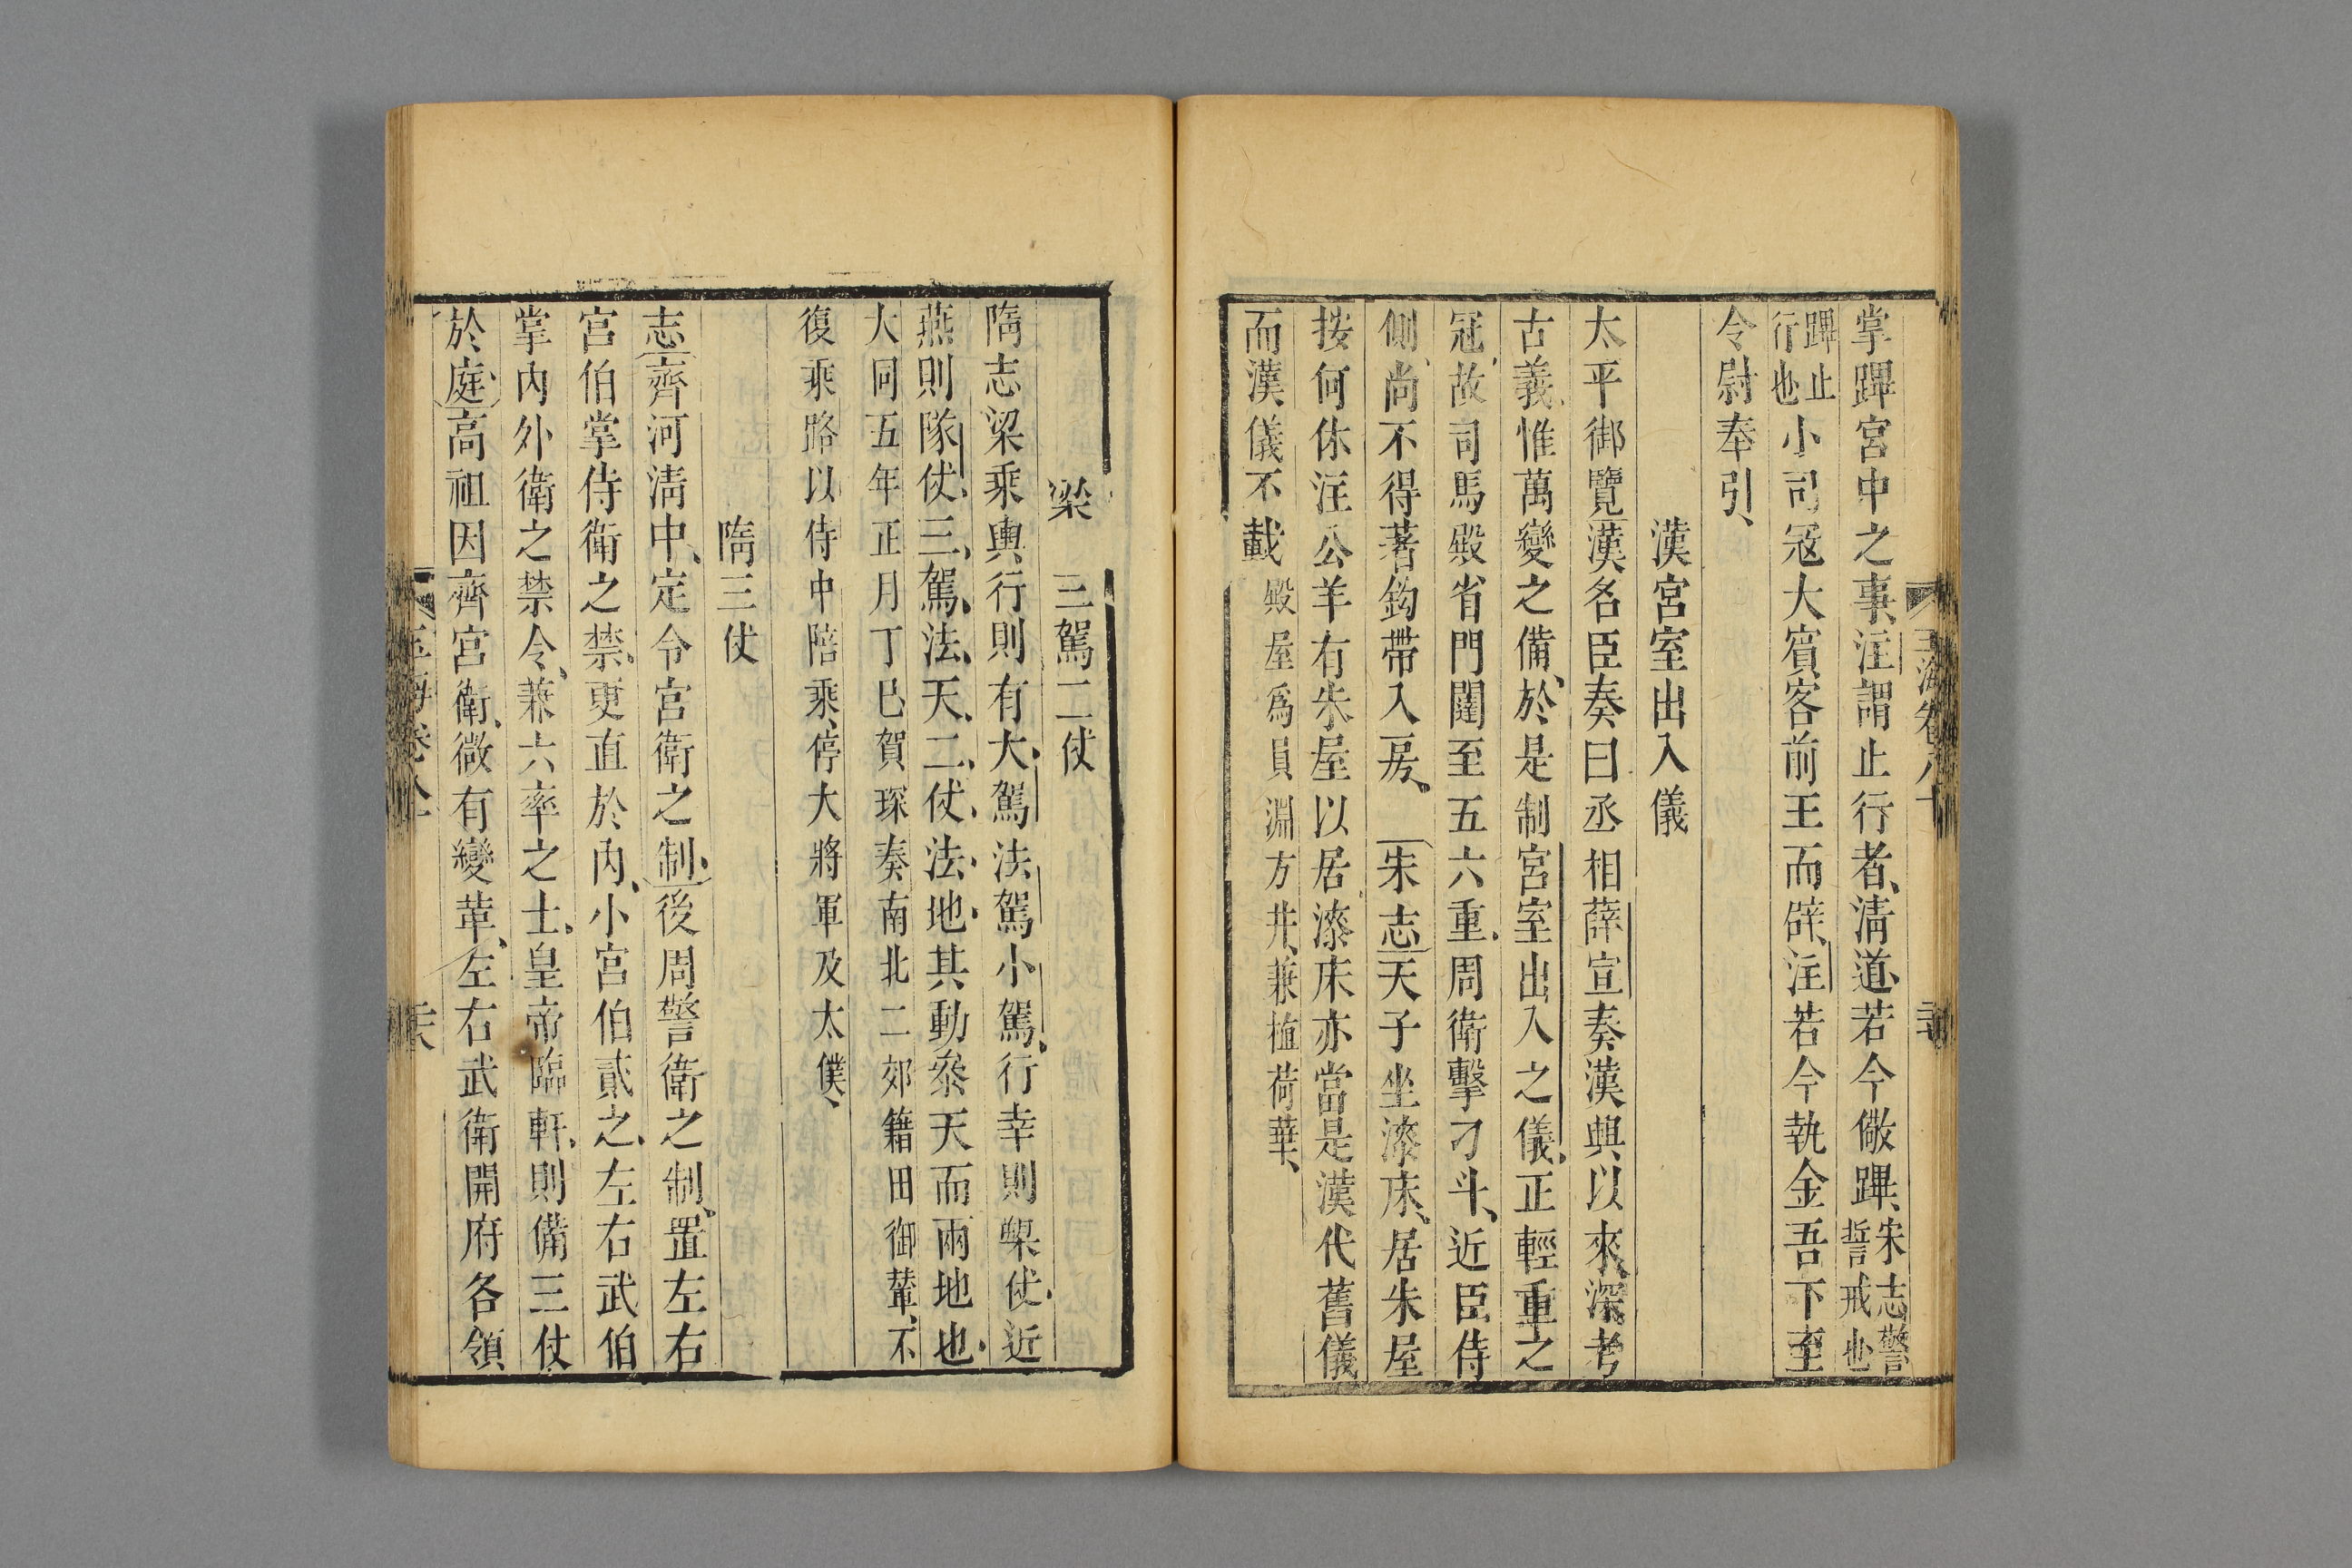 掌蹕宮中之事注謂止行者清道若今儆蹕宋志警誓戒也
蹕止行也小司寇大賓客前王而辟注若今執金吾下至
令尉奉引
漢宮室出入儀
太平御覽漢名臣奏曰丞相薛宣奏漢興以來深考
古義惟萬變之備於是制宮室出入之儀正輕重之
冠故司馬殿省門闥至五六重周衛擊刁斗近臣侍
側尚不得著鉤帶入房 朱志天子坐漆床居朱屋
按何休注公羊有朱屋以居漆床亦當是漢代舊儀
而漢儀不載殿屋為員淵方井兼植荷華
玉海卷八十
梁 三駕二仗
隋志梁乘輿行則有大駕法駕小駕行幸則槊仗近
燕則隊仗三駕法天二仗法地其動參天而兩地也
大同五年正月丁巳賀琛奏南北二郊籍田御輦不
復乘路以侍中陪乘停大將軍及太僕
隋三仗
志齊河清中定令宮衛之制後周警衛之制置左右
宮伯掌侍衛之禁更直於內小宮伯貳之左右武伯
掌內外衛之禁令兼六率之士皇帝臨軒則備三仗
於庭高祖因齊宮衛微有變革左右武衛開府各領